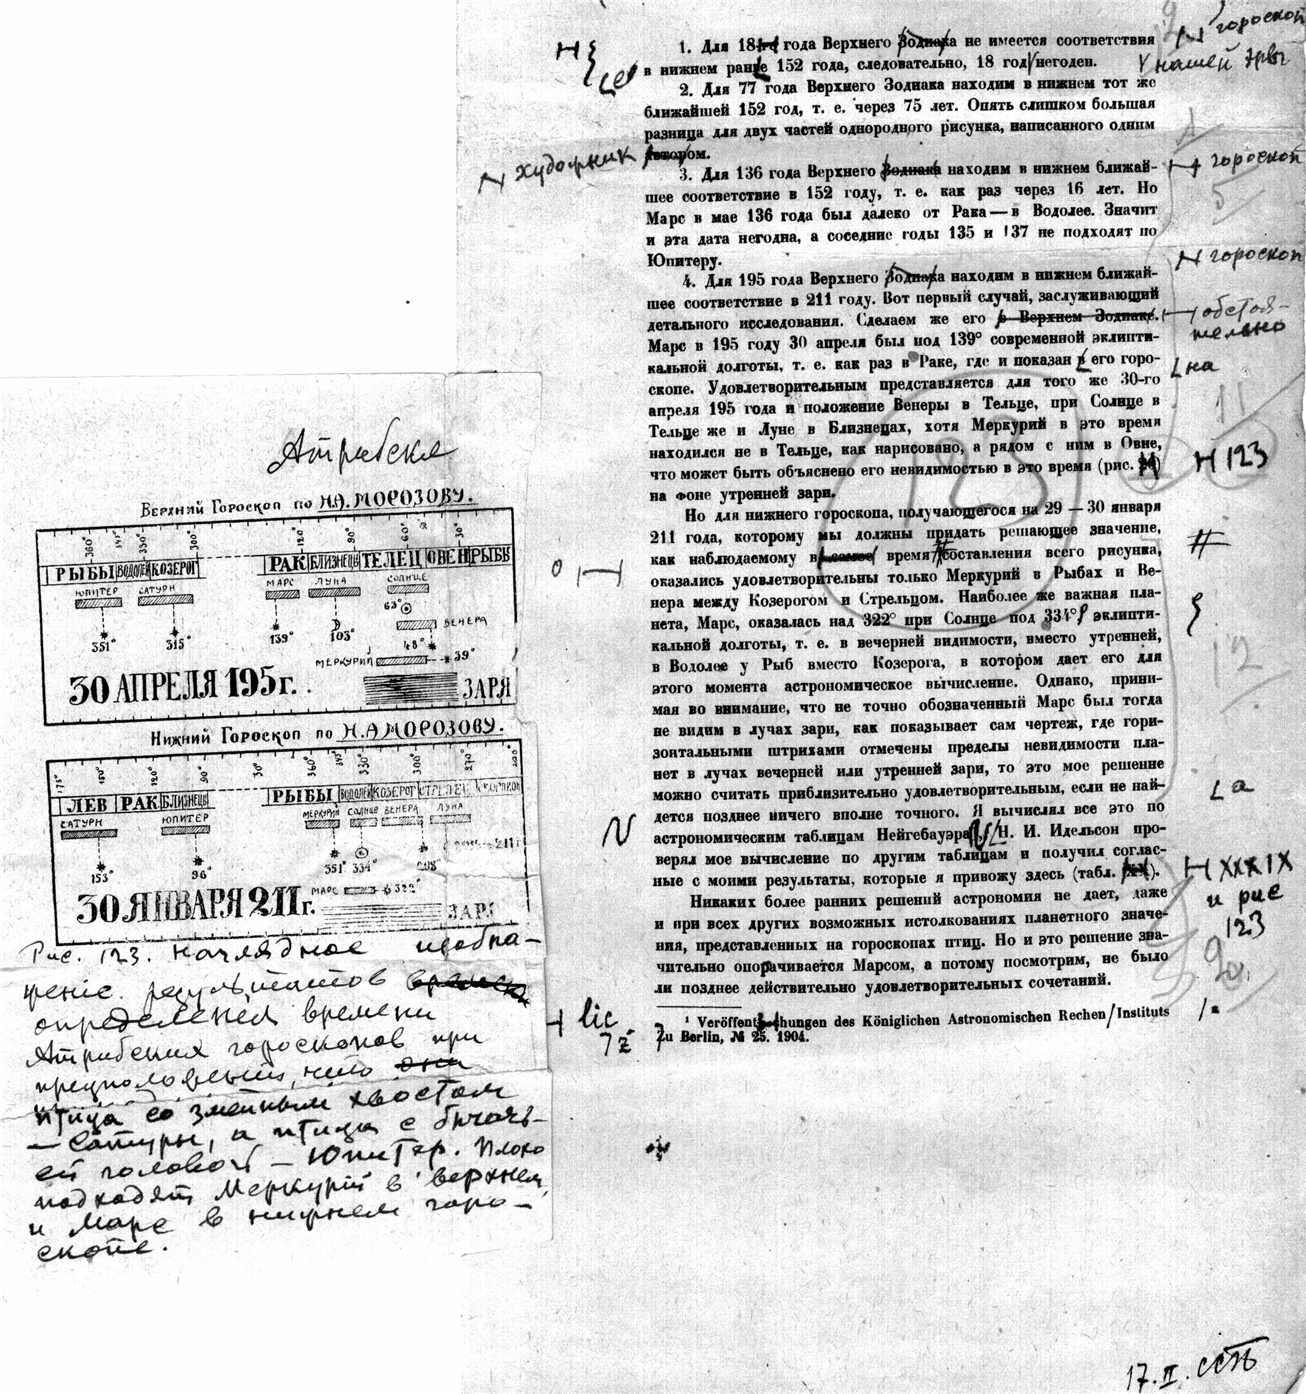 1. Для 18 года Верхнего Зодиака не имеется соответствия
в нижнем ранее 152 года, следовательно, 18 год негоден.
2. Для 77 года Верхнего Зодиака находим в нижнем тот же
ближайшей 152 год, т. е. через 75 лет. Опять слишком большая
разница для двух частей однородного рисунка, написанного одним
автором.
3. Для 136 года Верхнего Зодиака находим в нижнем ближай-
шее соответствие в 152 году, т. е. как раз через 16 лет. Но
Марс в мае 136 года был далеко от Рака — в Водолее. Значит
и эта дата негодна, а соседние годы 135 и 137 не подходят по
Юпитеру.
4. Для 195 года Верхнего Зодиака находим в нижнем ближай-
шее соответствие в 211 году. Вот первый случай, заслуживающий
детального исследования. Сделаем же его в Верхнем Зодиаке.
Марс в 195 году 30 апреля был под 139° современной эклипти-
кальной долготы, т. е. как раз в Раке, где и показан в его горо-
скопе. Удовлетворительным представляется для того же 30-го
апреля 195 года и положение Венеры в Тельце, при Солнце в
Тельце же и Луне в Близнецах, хотя Меркурий в это время
находился не в Тельце, как нарисовано, а рядом с ним в Овне,
что может быть объяснено его невидимостью в это время (рис.
на фоне утренней зари.
Но для нижнего гороскопа, получающегося на 29 — 30 января
211 года, которому мы должны придать решающее значение,
как наблюдаемому в самое время составления всего рисунка,
оказались удовлетворительны только Меркурий в Рыбах и Ве-
нера между Козерогом и Стрельцом. Наиболее же важная пла-
нета, Марс, оказалась над 322° при Солнце под 334° эклипти-
кальной долготы, т. е. в вечерней видимости, вместо утренней,
в Водолее у Рыб вместо Козерога, в котором дает его для
этого момента астрономическое вычисление. Однако, прини-
мая во внимание, что не точно обозначенный Марс был тогда
не видим в лучах зари, как показывает сам чертеж, где гори-
зонтальными штрихами отмечены пределы невидимости пла-
нет в лучах вечерней или утренней зари, то это мое решение
можно считать приблизительно удовлетворительным, если не най-
дется позднее ничего вполне точного. Я вычислял все это по
астрономическим таблицам Нейгебауэра Н. И. Идельсон про-
верял мое вычисление по другим таблицам и получил соглас-
ные с моими результаты, которые я привожу здесь (табл.
Никаких более ранних решений астрономия не дает, даже
и при всех других возможных истолкованиях планетного значе-
ния, представленных на гороскопах птиц. Но и это решение зна-
чительно опорачивается Марсом, а потому посмотрим, не было
ли позднее действительно удовлетворительных сочетаний.
¹ Veröffentlichungen des Königlichen Astronomischen Rechen/Instituts
Zu Berlin, № 25. 1904.
гороскоп
нашей эры
художник
гороскоп
5
гороскоп
обстоя-
тельно
на
11
123
123
12
а
XXXIX
и рис
123
lic
17. II.
Верхний Гороскоп по Н.А. МОРОЗОВУ.
360° 345 330 300° 120° 90 60° 30°
РЫБЫ ВОДОЛЕЙ КОЗЕРОГ РАК БЛИЗНЕЦЫ ТЕЛЕЦ ОВЕН РЫБЫ
ЮПИТЕР САТУРН МАРС ЛУНА СОЛНЦЕ
63°
ВЕНЕРА
351° 315° 139° 103° 48°
МЕРКУРИЙ 39°
30 АПРЕЛЯ 195 г. ЗАРЯ
Нижний Гороскоп по Н.А МОРОЗОВУ.
120° 90° 30° 360° 345 330° 300° 270°
ЛЕВ РАК БЛИЗНЕЦЫ РЫБЫ ВОДОЛЕЙ КОЗЕРОГ СТРЕЛЕЦ
САТУРН ЮПИТЕР МЕРКУРИЙ СОЛНЦЕ ВЕНЕРА ЛУНА
153° 96° 351° 334° 298°
МАРС 322°
30 ЯНВАРЯ 211 г. ЗАРЯ
Рис. 123. Наглядное изобра-
жение результатов
определения времени
Атрибских гороскопов при
предположении, что
птица со змеиным хвостом
— Сатурн, а птица с бычь-
ей головой — Юпитер. Плохо
подходят Меркурий в верхнем
и Марс в нижнем горо-
скопе.